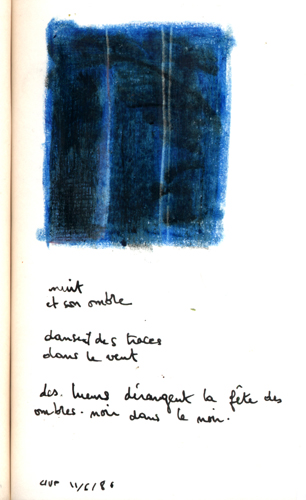 nuit
et son ombre
dansent des traces
dans le vent
des lueurs dérangent la fête des
ombres. noir dans le noir.
11/6/86